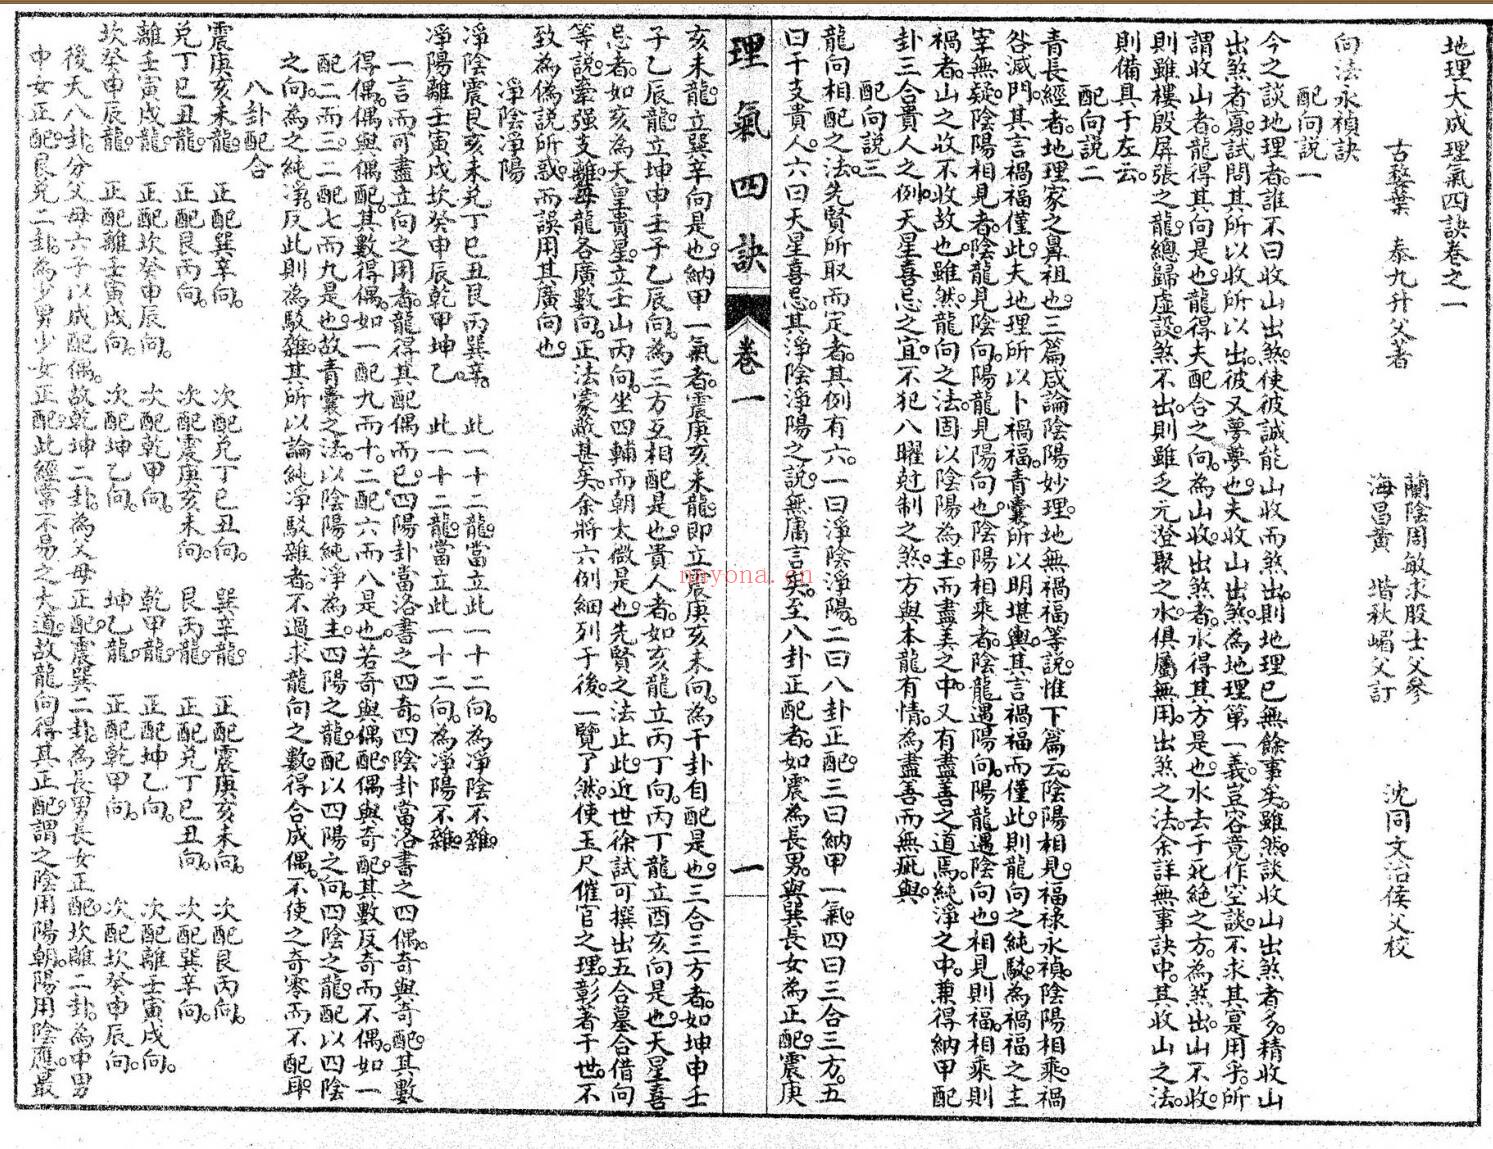 地理大成理氣四訣卷之一
古婺葉　泰九升父著
蘭陰周敏求殷士父參
海昌黃　堦秋嵋父訂
沈同文活侯父校
向法永禎訣
配向說一
今之談地理者誰不曰收山出煞使彼誠能山收而煞出則地理已無餘事矣雖然談收山出煞者多精收山
出煞者寡試問其所以收所以出彼又夢夢也夫收山出煞為地理第一義豈容竟作空談不求其寔用乎所
謂收山者龍得其向是也龍得夫配合之向為山收出煞者水得其方是也水去于死絕之方為煞出山不收
則雖樓殿屏張之龍總歸虛設煞不出則雖乏元澄聚之水俱屬無用出煞之法余詳無事訣中其收山之法
則備具于左云
配向說二
青長經者地理家之鼻祖也三篇咸論陰陽妙理地無禍福等說惟下篇云陰陽相見福祿永禎陰陽相乘禍
咎滅門其言禍福僅此夫地理所以卜禍福青囊所以明堪輿其言禍福而僅此則龍向之純駁為禍福之主
宰無疑陰陽相見者陰龍見陰向陽龍見陽向也陰陽相乘者陰龍遇陽向陽龍遇陰向也相見則福相乘則
禍者山之收不收故也雖然龍向之法固以陰陽為主而盡美之中又有盡善之道焉純淨之中兼得納甲配
卦三合貴人之例天星喜忌之宜不犯八曜尅制之煞方與本龍有情為盡善而無疵與
配向說三
龍向相配之法先賢所取而定者其例有六一曰淨陰淨陽二曰八卦正配三曰納甲一氣四曰三合三方五
曰干支貴人六曰天星喜忌其淨陰淨陽之說無庸言矣至八卦正配者如震為長男與巽長女為正配震庚
理氣四訣
卷一
一
亥未龍立巽辛向是也納甲一氣者震庚亥未龍即立震庚亥未向為干卦自配是也三合三方者如坤申壬
子乙辰龍立坤申壬子乙辰向為三方互相配是也貴人者如亥龍立丙丁向丙丁龍立酉亥向是也天星喜
忌者如亥為天皇貴星立壬山丙向坐四輔而朝太微是也先賢之法止此近世徐試可撰出五合墓合借向
等說牽强支離每龍各廣數向正法蒙蔽甚矣余將六例細列于後一覽了然使玉尺催官之理彰著于世不
致為偽說所惑而誤用其廣向也
淨陰淨陽
淨陰震艮亥未兌丁巳丑艮丙巽辛　此一十二龍當立此一十二向為淨陰不雜
凈陽離壬寅戌坎癸申辰乾甲坤乙　此一十二龍當立此一十二向為凈陽不雜
一言而可盡立向之用者龍得其配偶而已四陽卦當洛書之四奇四陰卦當洛書之四偶奇與奇配其數
得偶偶與偶配其數得偶如一配九而十二配六而八是也若奇與偶配偶與奇配其數反奇而不偶如一
配二而三二配七而九是也故青囊之法以陰陽純淨為主四陽之龍配以四陽之向四陰之龍配以四陰
之向為之純凈反此則為駁雜其所以論純淨駁雜者不過求龍向之數得合成偶不使之奇零而不配耳
八卦配合
震庚亥未龍　正配巽辛向　次配兌丁巳丑向　巽辛龍　正配震庚亥未向　次配艮丙向
兌丁巳丑龍　正配艮丙向　次配震庚亥未向　艮丙龍　正配兌丁巳丑向　次配巽辛向
離壬寅戌龍　正配坎癸申辰向　次配乾甲向　乾甲龍　正配坤乙向　次配離壬寅戌向
坎癸申辰龍　正配離壬寅戌向　次配坤乙向　坤乙龍　正配乾甲向　次配坎癸申辰向
後天八卦分父母六子以成配偶故乾坤二卦為父母正配震巽二卦為長男長女正配坎離二卦為中男
中女正配艮兌二卦為少男少女正配此經常不易之大道故龍向得其正配謂之陰用陽朝陽用陰應最
nayona.cn